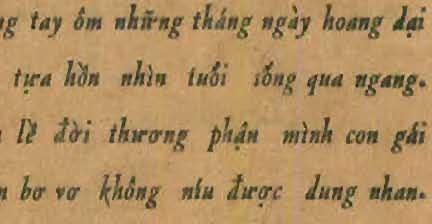 tay ôm những tháng ngày hoang dại
tựa hồn nhìn tuổi sống qua ngang.
lẽ đời thương phận mình con gái
bơ vơ không níu được dung nhan.